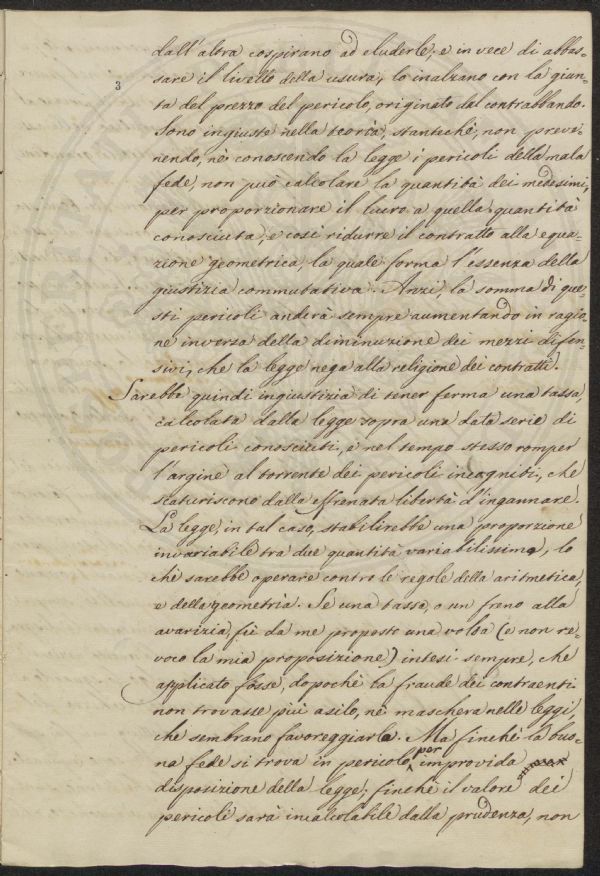 dall'altra cospirano ad eluderle, e in vece di abbas=
sare il livello della usura, lo inalzano con la giun=
ta del prezzo del pericolo, originato dal contrabbando.
3
Sono ingiuste nella teoria, stantechè, non preve=
nendo, nè conoscendo la legge i pericoli della mala
fede, non può calcolare la quantità dei medesimi,
per proporzionare il lucro a quella quantità
conosciuta, e così ridurre il contratto alla equa=
zione geometrica, la quale forma l'essenza della
giustizia commutativa. Anzi, la somma di que=
sti pericoli anderà sempre aumentando in ragio=
ne inversa della diminuzione dei mezzi difen=
sivi, che la legge nega alla religione dei contratti.
Sarebbe quindi ingiustizia di tener ferma una tassa
calcolata dalla legge sopra una data serie di
pericoli conosciuti, e nel tempo stesso romper
l'argine al torrente dei pericoli incogniti, che
scaturiscono dalla effrenata libertà d'ingannare.
La legge, in tal caso, stabilirebbe una proporzione
invariabile tra due quantità variabilissime, lo
che sarebbe operare contro le regole della aritmetica,
e della geometria. Se una tassa, o un freno alla
avarizia, fù da me proposto una volta (e non re=
voco la mia proposizione) intesi sempre, che
applicato fosse, dopochè la fraude dei contraenti
non trovasse più asilo, nè maschera nelle leggi
che sembrano favoreggiarla. Ma finchè la buo=
na fede si trova in pericolo per improvida
disposizione della legge; finchè il valore dei
pericoli sarà incalcolabile dalla prudenza, non